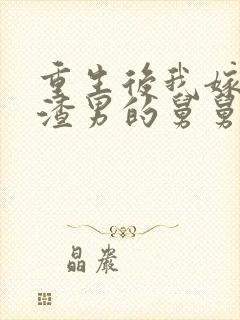 重生後我嫁
渣男的舅舅
晶裳